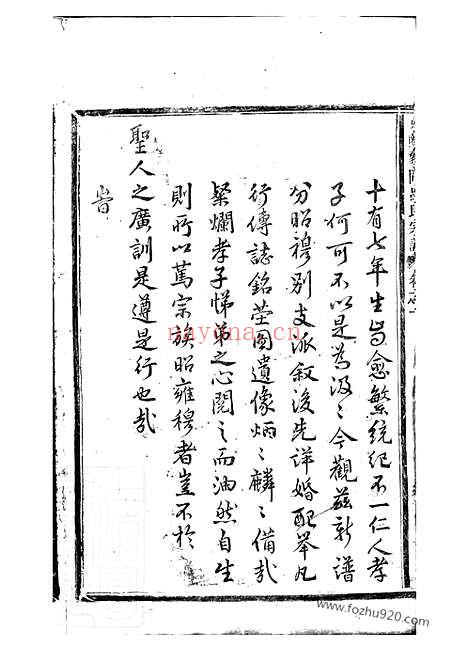 十有七年生齒愈繁統紀不一仁人孝
子何可不以是為汲〻今觀茲新譜
分昭穆別支派敘後先詳婚配舉凡
行傳誌銘塋圖遺像炳〻麟〻備哉
粲爛孝子悌弟之心閱之而油然自生
則所以篤宗族昭雍穆者豈不於
聖人之廣訓是遵是行也哉
峕
nayona.cn
www.fozhu920.com